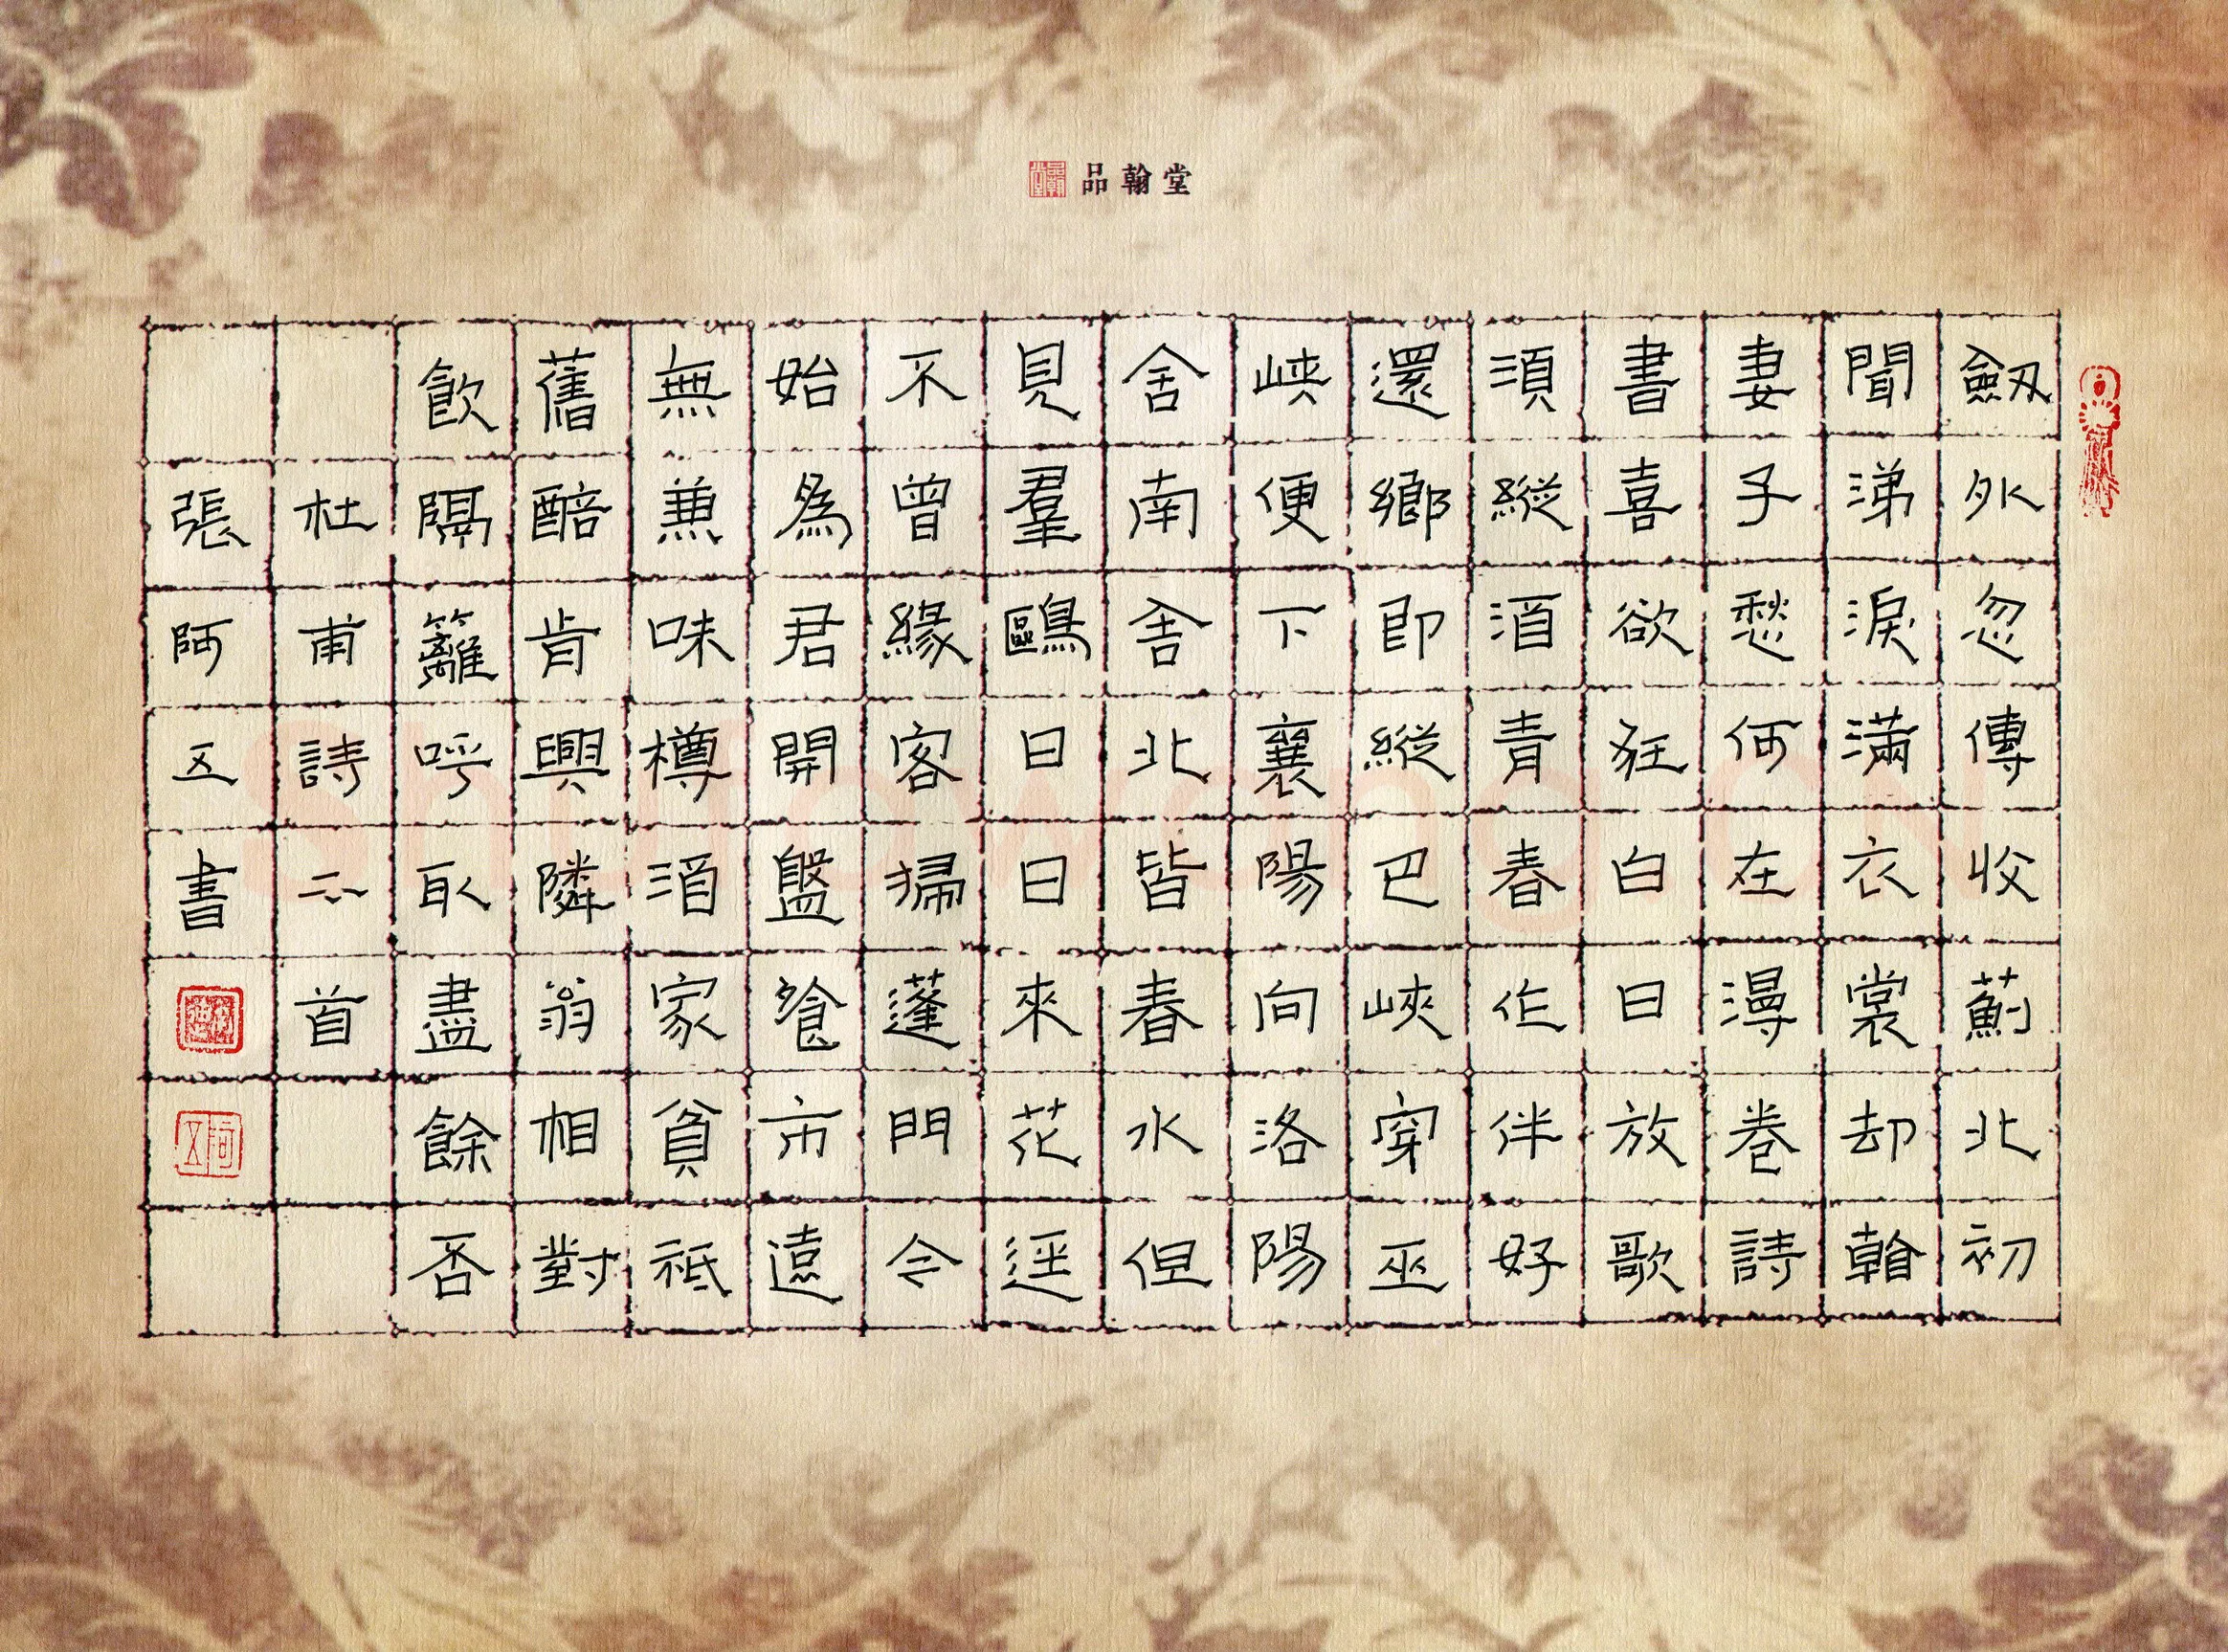 品翰堂
劔外忽傳收薊北初
聞涕淚滿衣裳却看
妻子愁何在漫卷詩
書喜欲狂白日放歌
須縱酒青春作伴好
還鄉即縱巴峽穿巫
峽便下襄陽向洛陽
舍南舍北皆春水但
見羣鷗日日來花逕
不曾緣客掃蓬門今
始為君開盤飱市遠
無兼味樽酒家貧祗
舊醅肯與隣翁相對
飲隔籬呼取盡餘否
杜甫詩二首
張阿五書
阿五